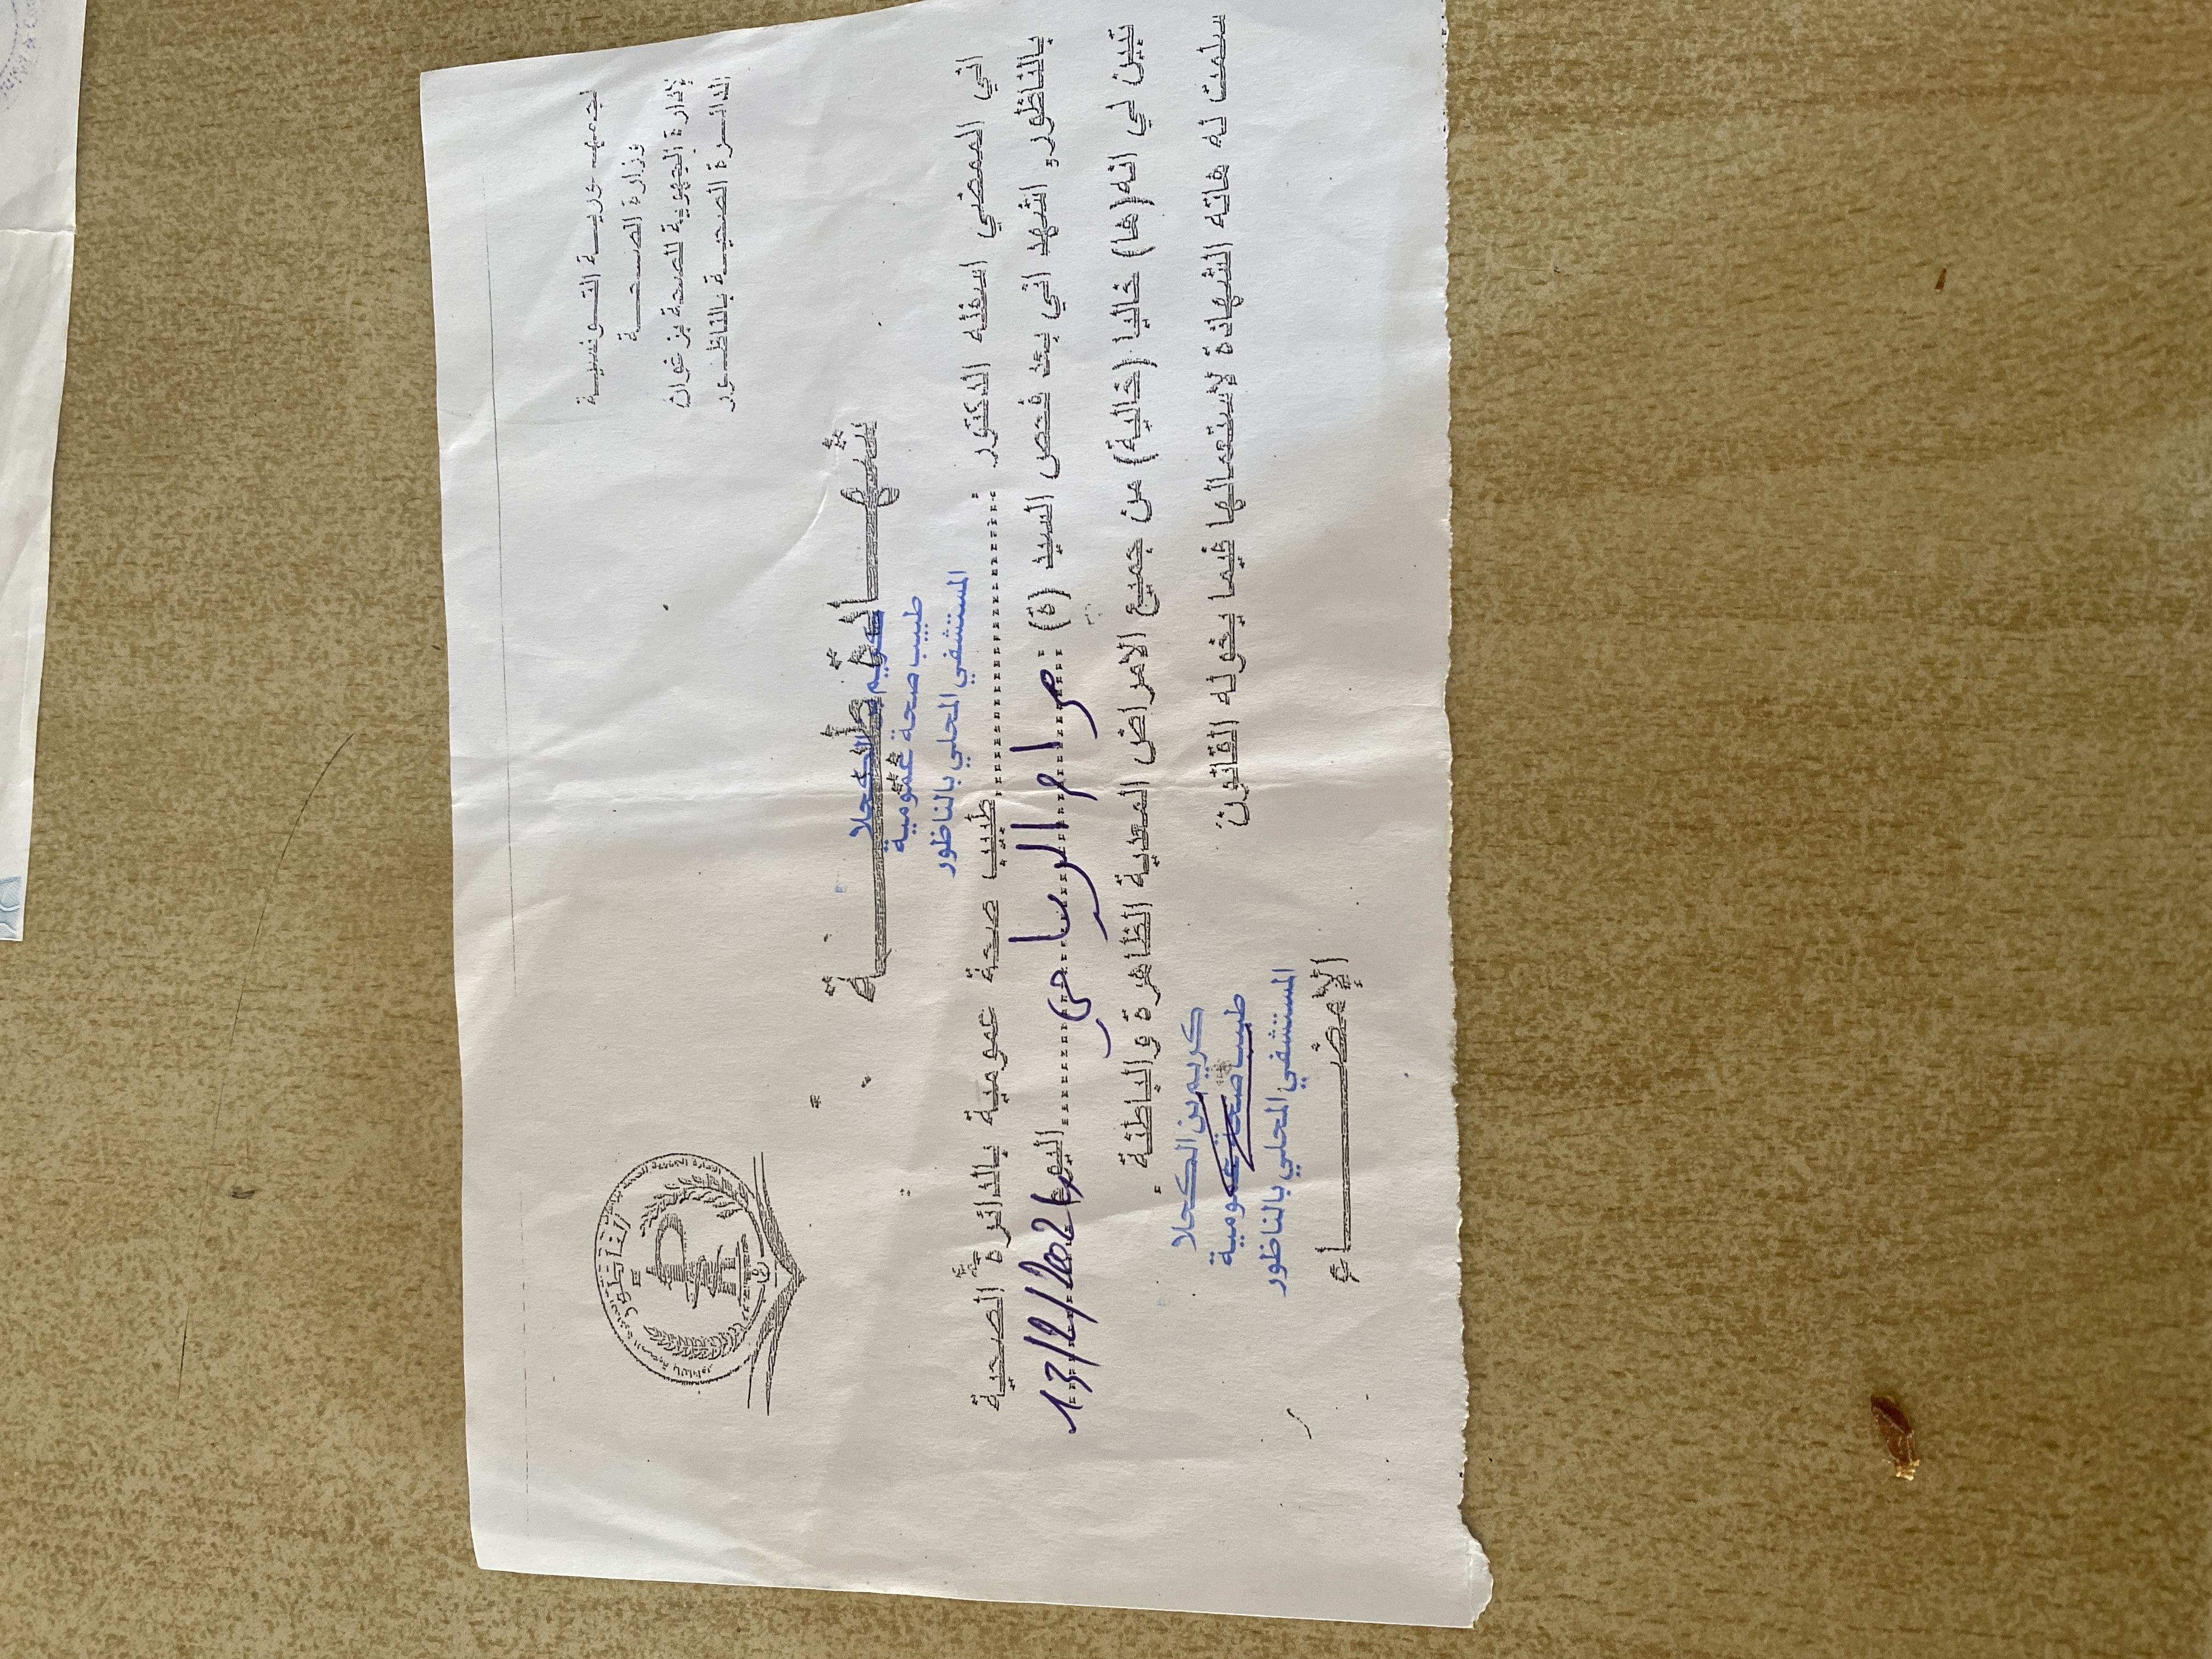 الجمهورية التونسية
وزارة الصحة
الإدارة الجهوية للصحة بزغوان
الدائرة الصحية بالناظور
الناظور
شهادة طبية
كريم بن الكحلا
طبيب صحة عمومية
المستشفى المحلي بالناظور
اني الممضي اسفله الدكتور : طبيب صحة عمومية بالدائرة الصحية
بالناظور, اشهد اني بعد فحص السيد (ة) : مرام الرياحي اليوم 13/12/2021
تبين لي انه(ها) خاليا (خالية) من جميع الامراض المعدية الظاهرة والباطنة .
سلمت له هاته الشهادة لاستعمالها فيما يخوله القانون
كريم بن الكحلا
طبيب صحة عمومية
المستشفى المحلي بالناظور
الإمضاء